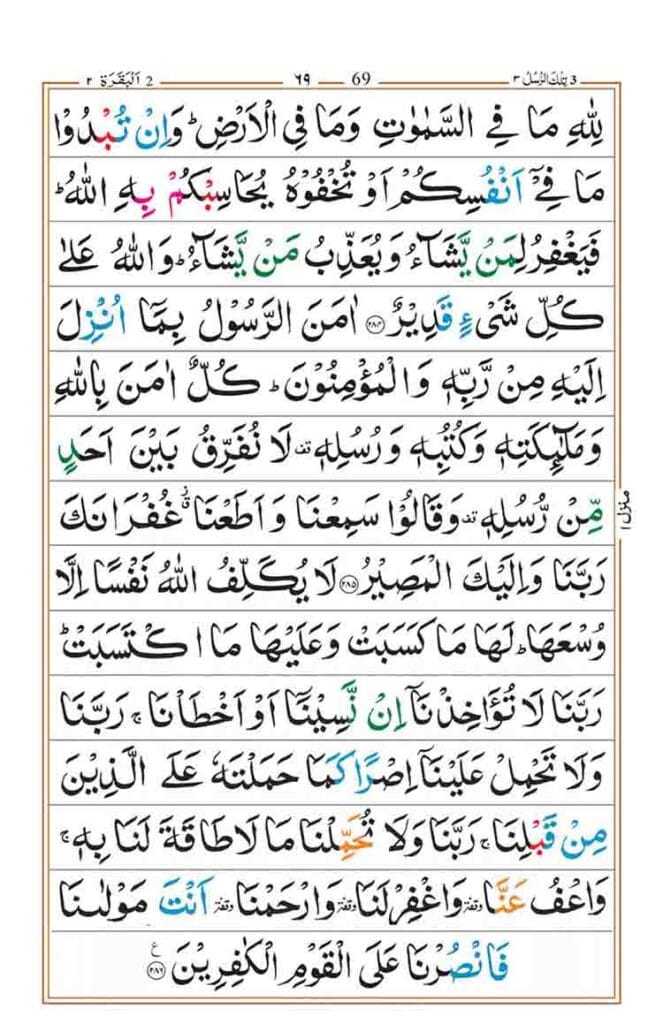 3 تِلْكَ الرُّسُلُ ٣ 69 ٦٩ 2 اَلْبَقَرَة ٢
لِلّٰهِ مَا فِی السَّمٰوٰتِ وَمَا فِی الْاَرْضِ ؕ وَاِنْ تُبْدُوْا
مَا فِیْۤ اَنْفُسِكُمْ اَوْ تُخْفُوْهُ یُحَاسِبْكُمْ بِهِ اللّٰهُ ؕ
فَیَغْفِرُ لِمَنْ یَّشَآءُ وَیُعَذِّبُ مَنْ یَّشَآءُ ؕ وَاللّٰهُ عَلٰی
كُلِّ شَیْءٍ قَدِیْرٌ ﴿۲۸۴﴾ اٰمَنَ الرَّسُوْلُ بِمَاۤ اُنْزِلَ
اِلَیْهِ مِنْ رَّبِّهٖ وَالْمُؤْمِنُوْنَ ؕ كُلٌّ اٰمَنَ بِاللّٰهِ
وَمَلٰٓئِكَتِهٖ وَكُتُبِهٖ وَرُسُلِهٖ قف لَا نُفَرِّقُ بَیْنَ اَحَدٍ
مِّنْ رُّسُلِهٖ قف وَقَالُوْا سَمِعْنَا وَاَطَعْنَا ق ز غُفْرَانَكَ
رَبَّنَا وَاِلَیْكَ الْمَصِیْرُ ﴿۲۸۵﴾ لَا یُكَلِّفُ اللّٰهُ نَفْسًا اِلَّا
وُسْعَهَا ؕ لَهَا مَا كَسَبَتْ وَعَلَیْهَا مَا اكْتَسَبَتْ ؕ
رَبَّنَا لَا تُؤَاخِذْنَاۤ اِنْ نَّسِیْنَاۤ اَوْ اَخْطَاْنَا ۚ رَبَّنَا
وَلَا تَحْمِلْ عَلَیْنَاۤ اِصْرًا كَمَا حَمَلْتَهٗ عَلَی الَّذِیْنَ
مِنْ قَبْلِنَا ۚ رَبَّنَا وَلَا تُحَمِّلْنَا مَا لَا طَاقَةَ لَنَا بِهٖ ۚ
وَاعْفُ عَنَّا وقفة وَاغْفِرْ لَنَا وقفة وَارْحَمْنَا وقفة اَنْتَ مَوْلٰىنَا
فَانْصُرْنَا عَلَی الْقَوْمِ الْكٰفِرِیْنَ ﴿۲۸۶﴾ ع
منزل ١